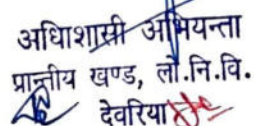 अधिशासी अभियन्ता
प्रान्तीय खण्ड, लो.नि.वि.
देवरिया